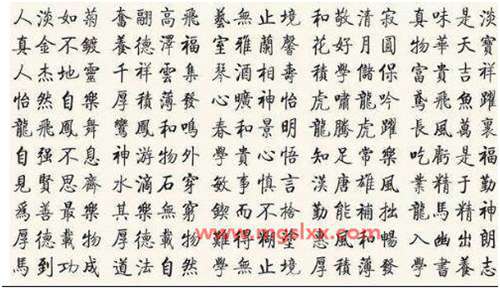 人淡如菊 奮翮高飛 藝無止境 和敬清寂 真味是淡
真金不鍍 養德澤福 室雅蘭馨 花好月圓 物華天寶
人杰地靈 千祥雲集 琴酒相壽 學儲保 富貴吉祥
怡然自樂 厚積薄發 心曠神怡 虎嘯龍吟 鳶飛魚躍
龍飛鳳舞 鸞鳳和鳴 春和景明 龍騰虎躍 長風萬裏
自强不息 神游物外 學貴心悟 知足常樂 吃虧是福
見賢思齋 水滴石穿 敏事慎言 漢唐雄風 業精于勤
爲善最樂 其樂無窮 鍥而不捨 勤能補拙 龍馬精神
厚德載物 厚德載物 難得糊塗 惠風和暢 入幽出朗
馬到功成 道法自然 學無止境 厚積薄發 學養志
www.mgslxx.com